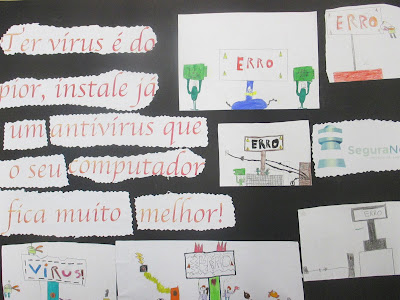 Ter vírus é do
pior, instale já
um antivírus que
o seu computador
fica muito melhor!
ERRO
ERRO
ERRO
SeguraNe
ERRO
VÍRUS!